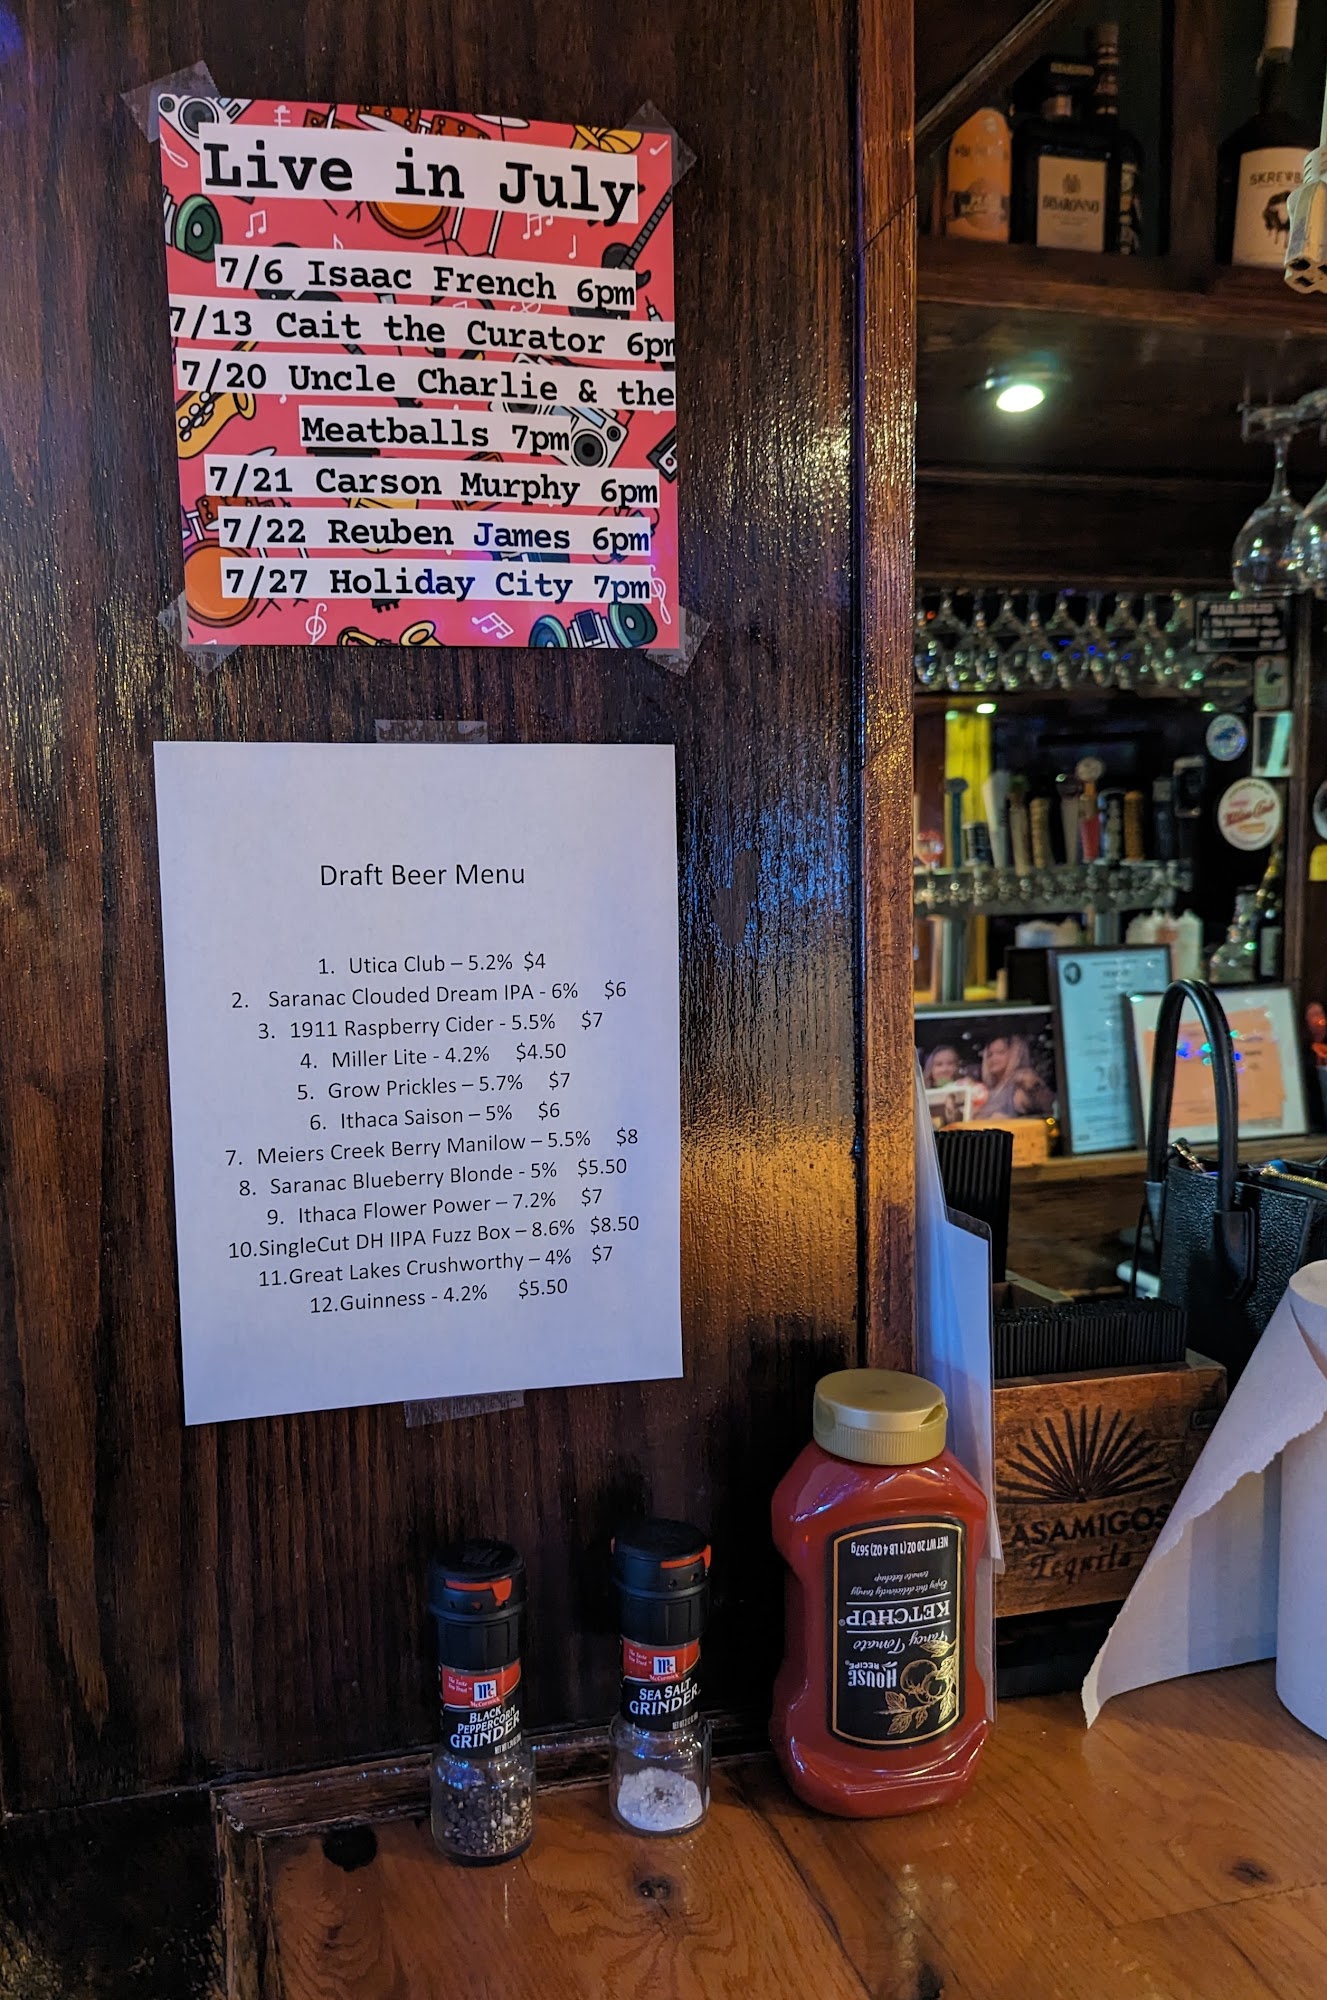 Live in July
7/6 Isaac French 6pm
7/13 Cait the Curator 6pm
7/20 Uncle Charlie & the
Meatballs 7pm
7/21 Carson Murphy 6pm
7/22 Reuben James 6pm
7/27 Holiday City 7pm
Draft Beer Menu
1. Utica Club – 5.2% $4
2. Saranac Clouded Dream IPA - 6% $6
3. 1911 Raspberry Cider - 5.5% $7
4. Miller Lite - 4.2% $4.50
5. Grow Prickles – 5.7% $7
6. Ithaca Saison – 5% $6
7. Meiers Creek Berry Manilow – 5.5% $8
8. Saranac Blueberry Blonde - 5% $5.50
9. Ithaca Flower Power – 7.2% $7
10.SingleCut DH IIPA Fuzz Box – 8.6% $8.50
11.Great Lakes Crushworthy – 4% $7
12.Guinness - 4.2% $5.50
DISARONNO
SKREWB
The Taste You Trust
Mc
McCormick
BLACK
PEPPERCORN
GRINDER
The Taste You Trust
Mc
McCormick
SEA SALT
GRINDER
HOUSE
RECIPE
Fancy Tomato
KETCHUP
Enjoy this deliciously tangy
tomato ketchup
NET WT 20 OZ (1 LB 4 OZ) 567g
ASAMIGOS
Tequila